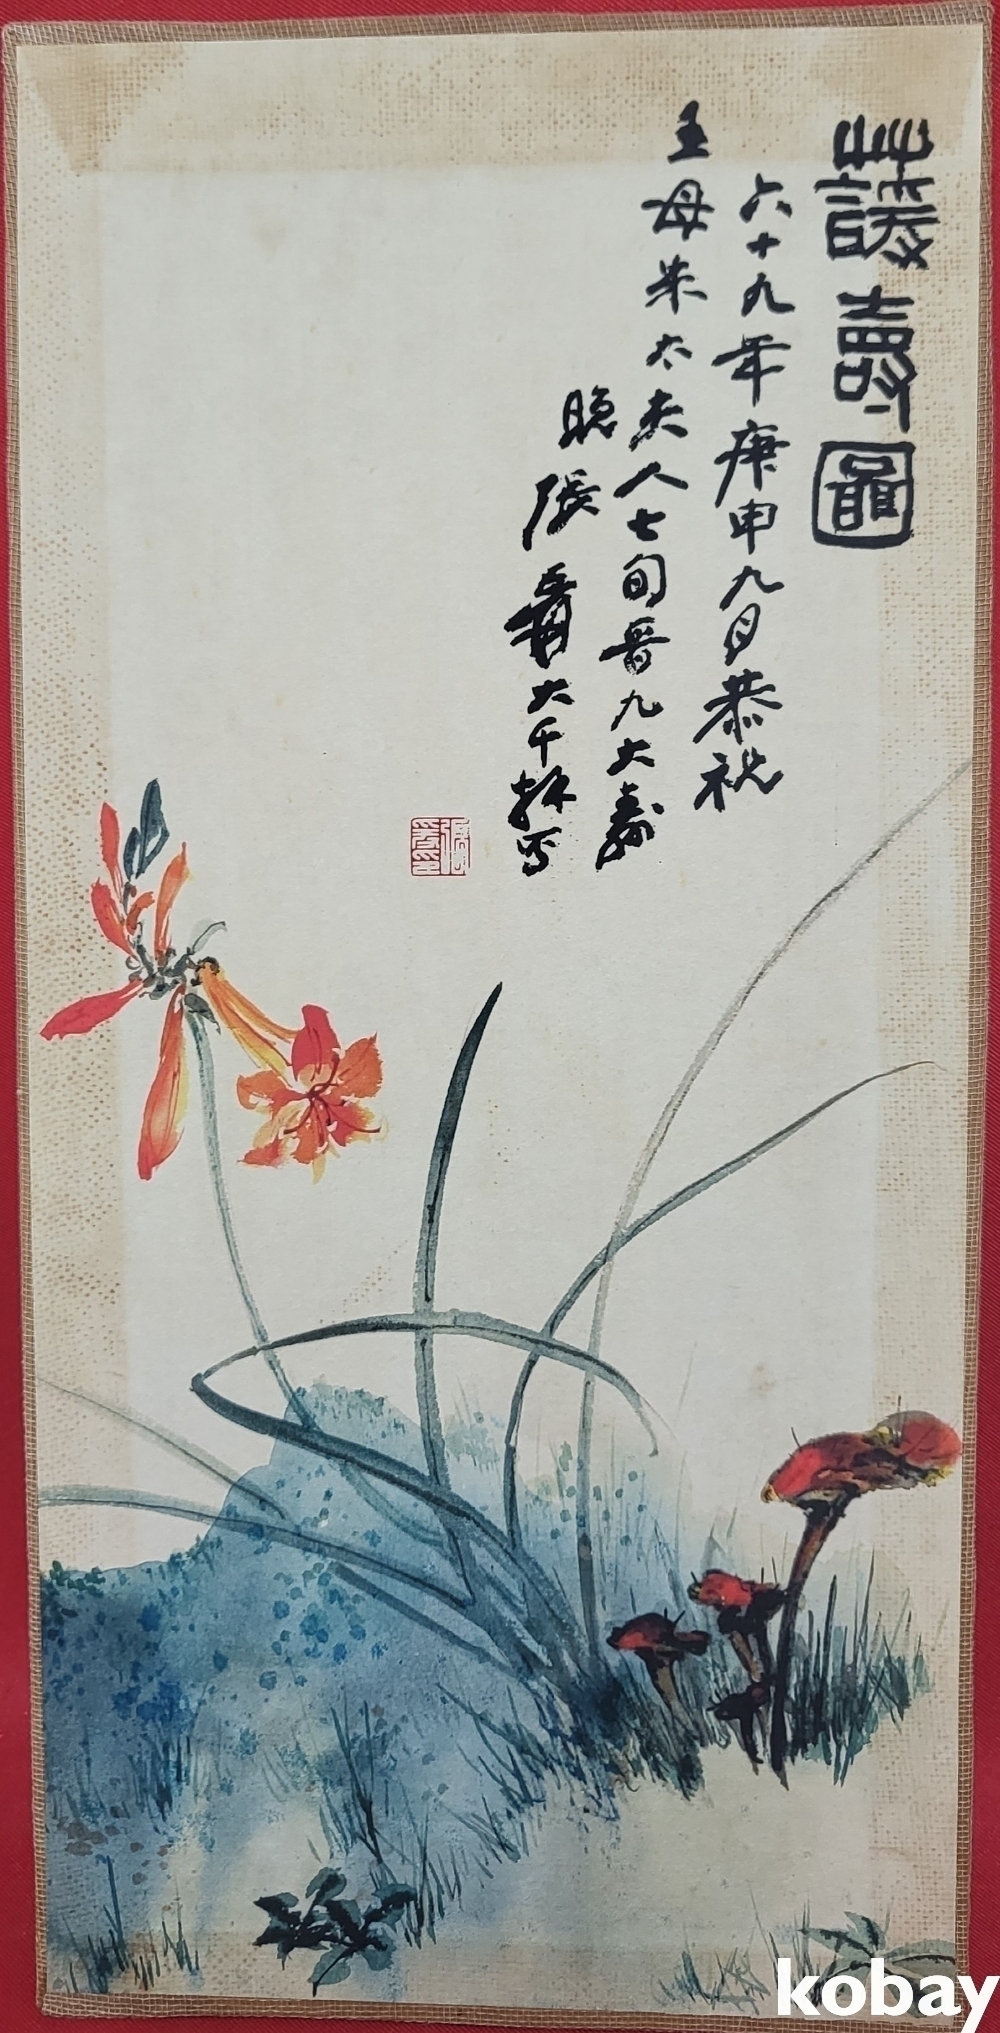 蘐壽圖
六十九年庚申九月恭祝
王母朱太夫人七旬晉九大壽
晚張爰大千拜寫
kobay